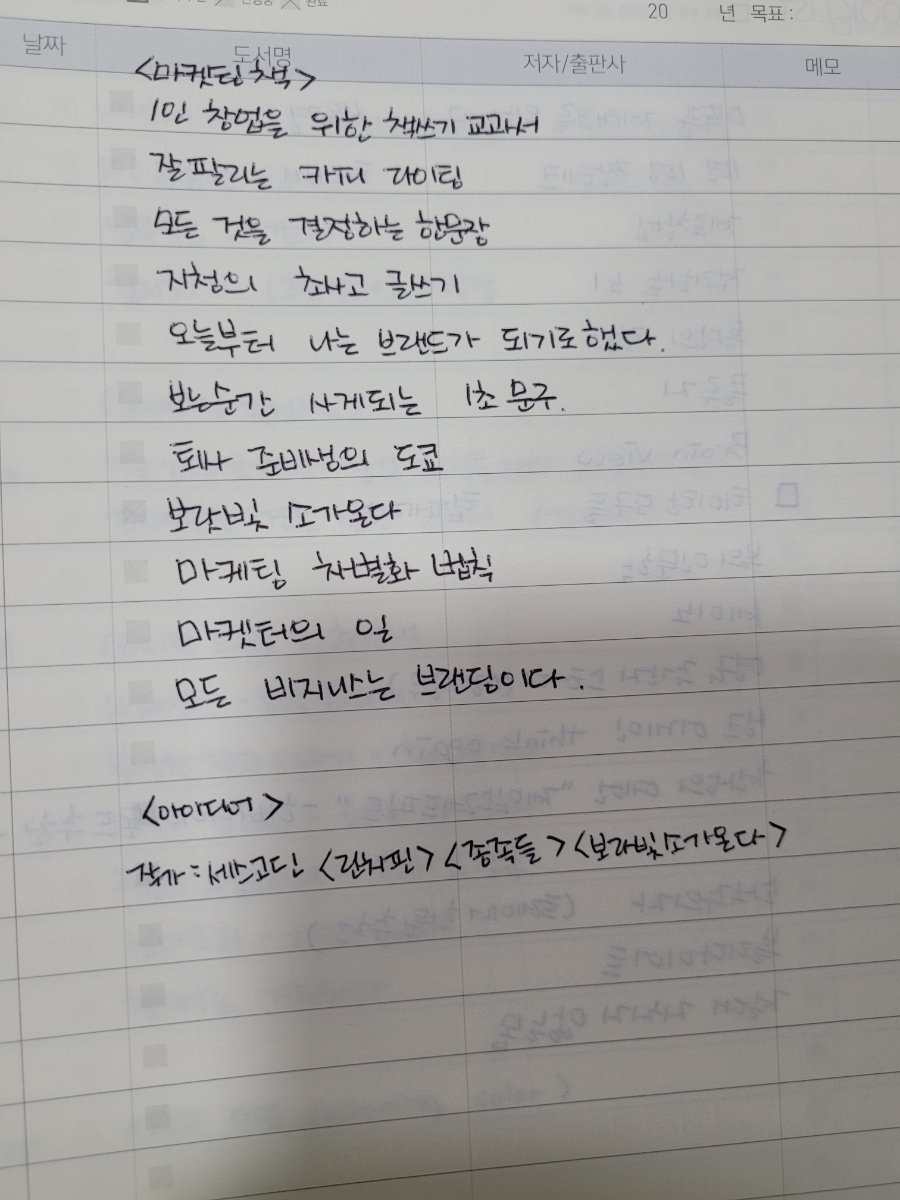 완료
20 년 목표:
날짜 도서명 저자/출판사 메모
<마켓팅 책>
1인 창업을 위한 책쓰기 교과서
잘팔리는 카피 라이팅
모든 것을 결정하는 한문장
자청의 초사고 글쓰기
오늘부터 나는 브랜드가 되기로했다.
보는순간 사게되는 1초 문구.
퇴사 준비생의 도쿄
보랏빛 소가온다
마케팅 차별화 법칙
마켓터의 일
모든 비지니스는 브랜딩이다.
<아이디어>
작가: 세스고딘 <린치핀> <종족들> <보라빛소가온다>